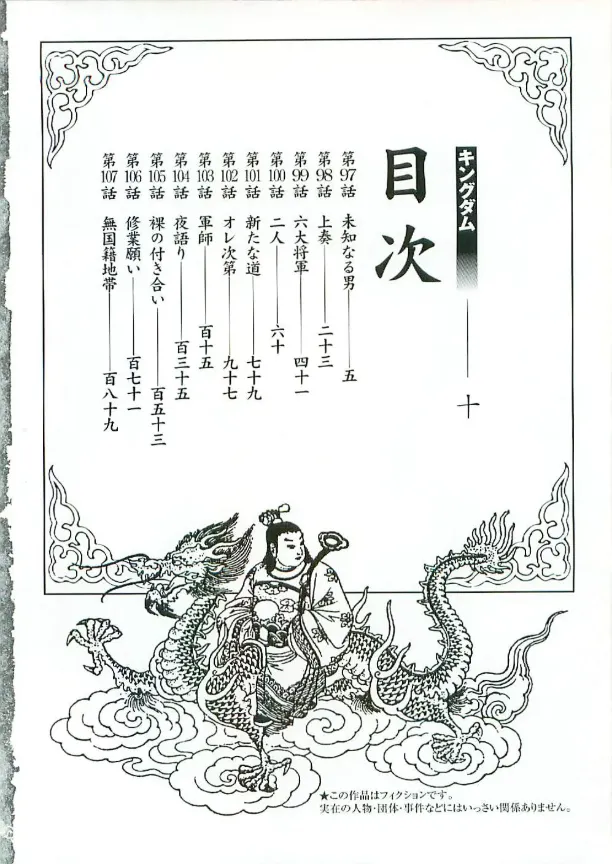 キングダム 十
目次
第97話 未知なる男 五
第98話 上奏 二十三
第99話 六大将軍 四十一
第100話 二人 六十
第101話 新たな道 七十九
第102話 オレ次第 九十七
第103話 軍師 百十五
第104話 夜語り 百三十五
第105話 裸の付き合い 百五十三
第106話 修業願い 百七十一
第107話 無国籍地帯 百八十九
★この作品はフィクションです。
実在の人物・団体・事件などにはいっさい関係ありません。